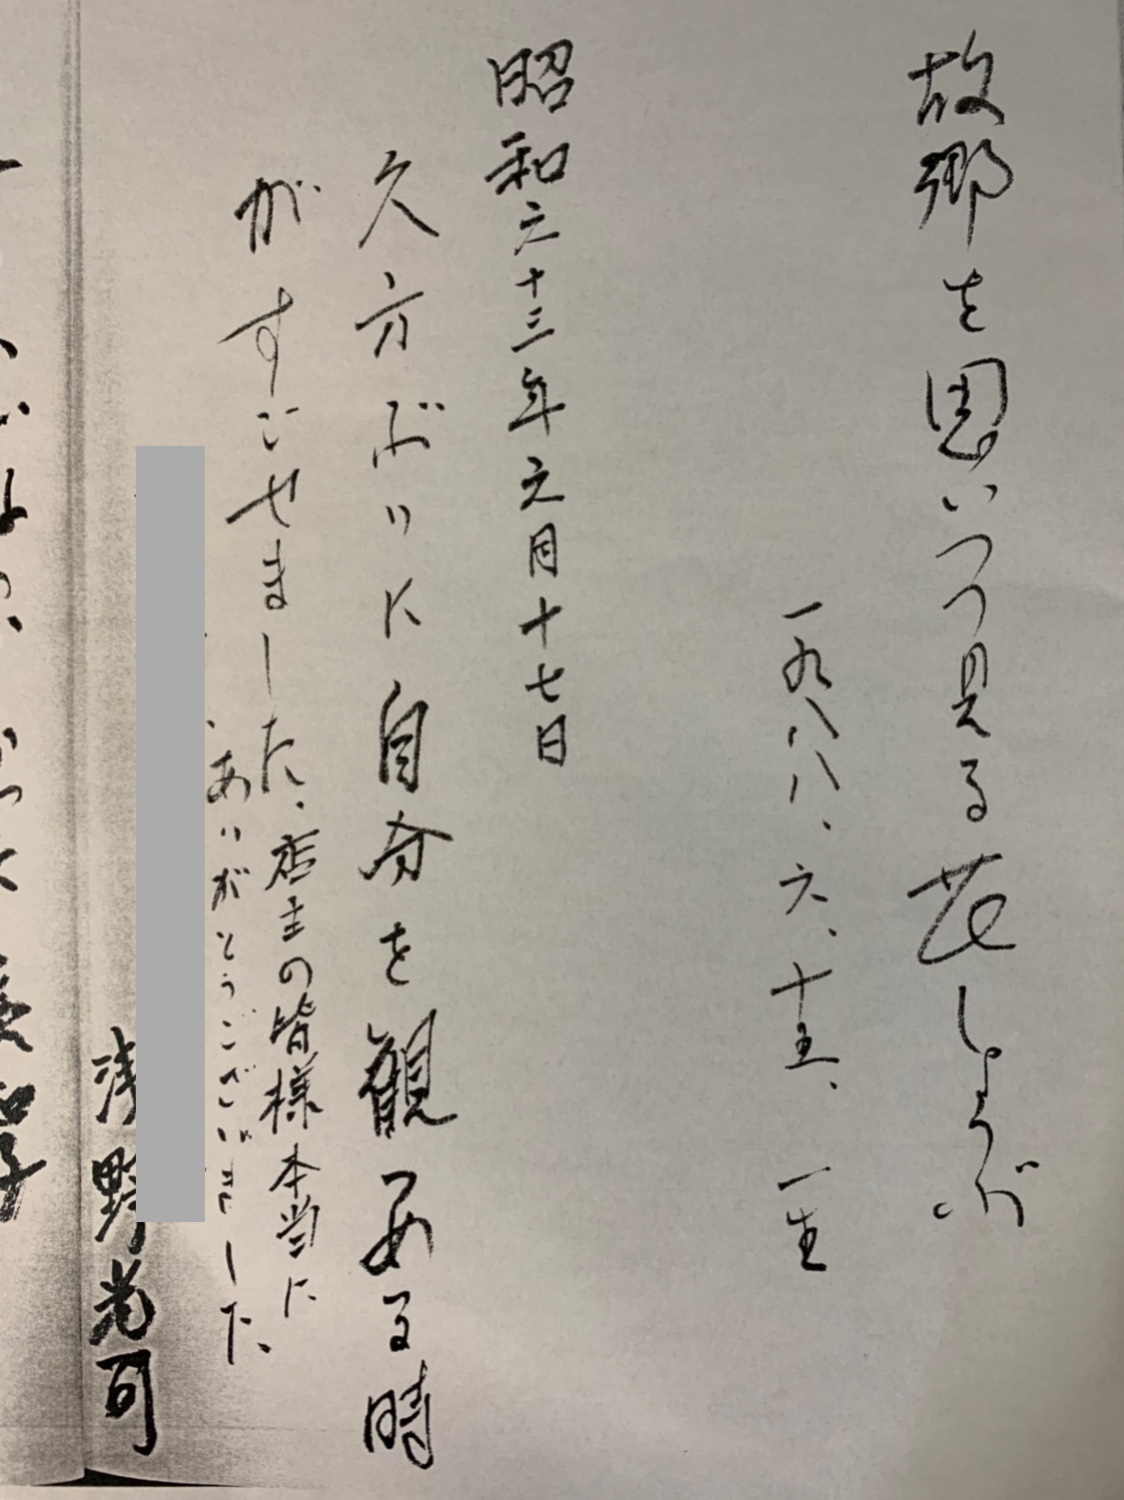 故郷を思いつつ見る花しょうぶ
一九八八、六、十五、 一生
昭和六十三年元月十七日
久方ぶりに自分を観つめる時
がすごせました、店主の皆様本当に
ありがとうございました、
浅野光司